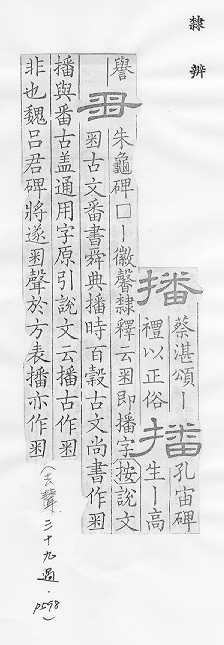 隸辨
播 蔡湛頌丨禮以正俗 播 孔宙碑生丨高
譽 𠁥 朱龜碑囗丨徽馨隸釋云𠁥即播字按說文
𠁥古文番書舜典播時百穀古文尚書作𠁥
播與番古盖通用字原引說文云播古作
非也魏呂君碑將遂𠁥聲於方表播亦作𠁥
(去聲.三十九過.P598)